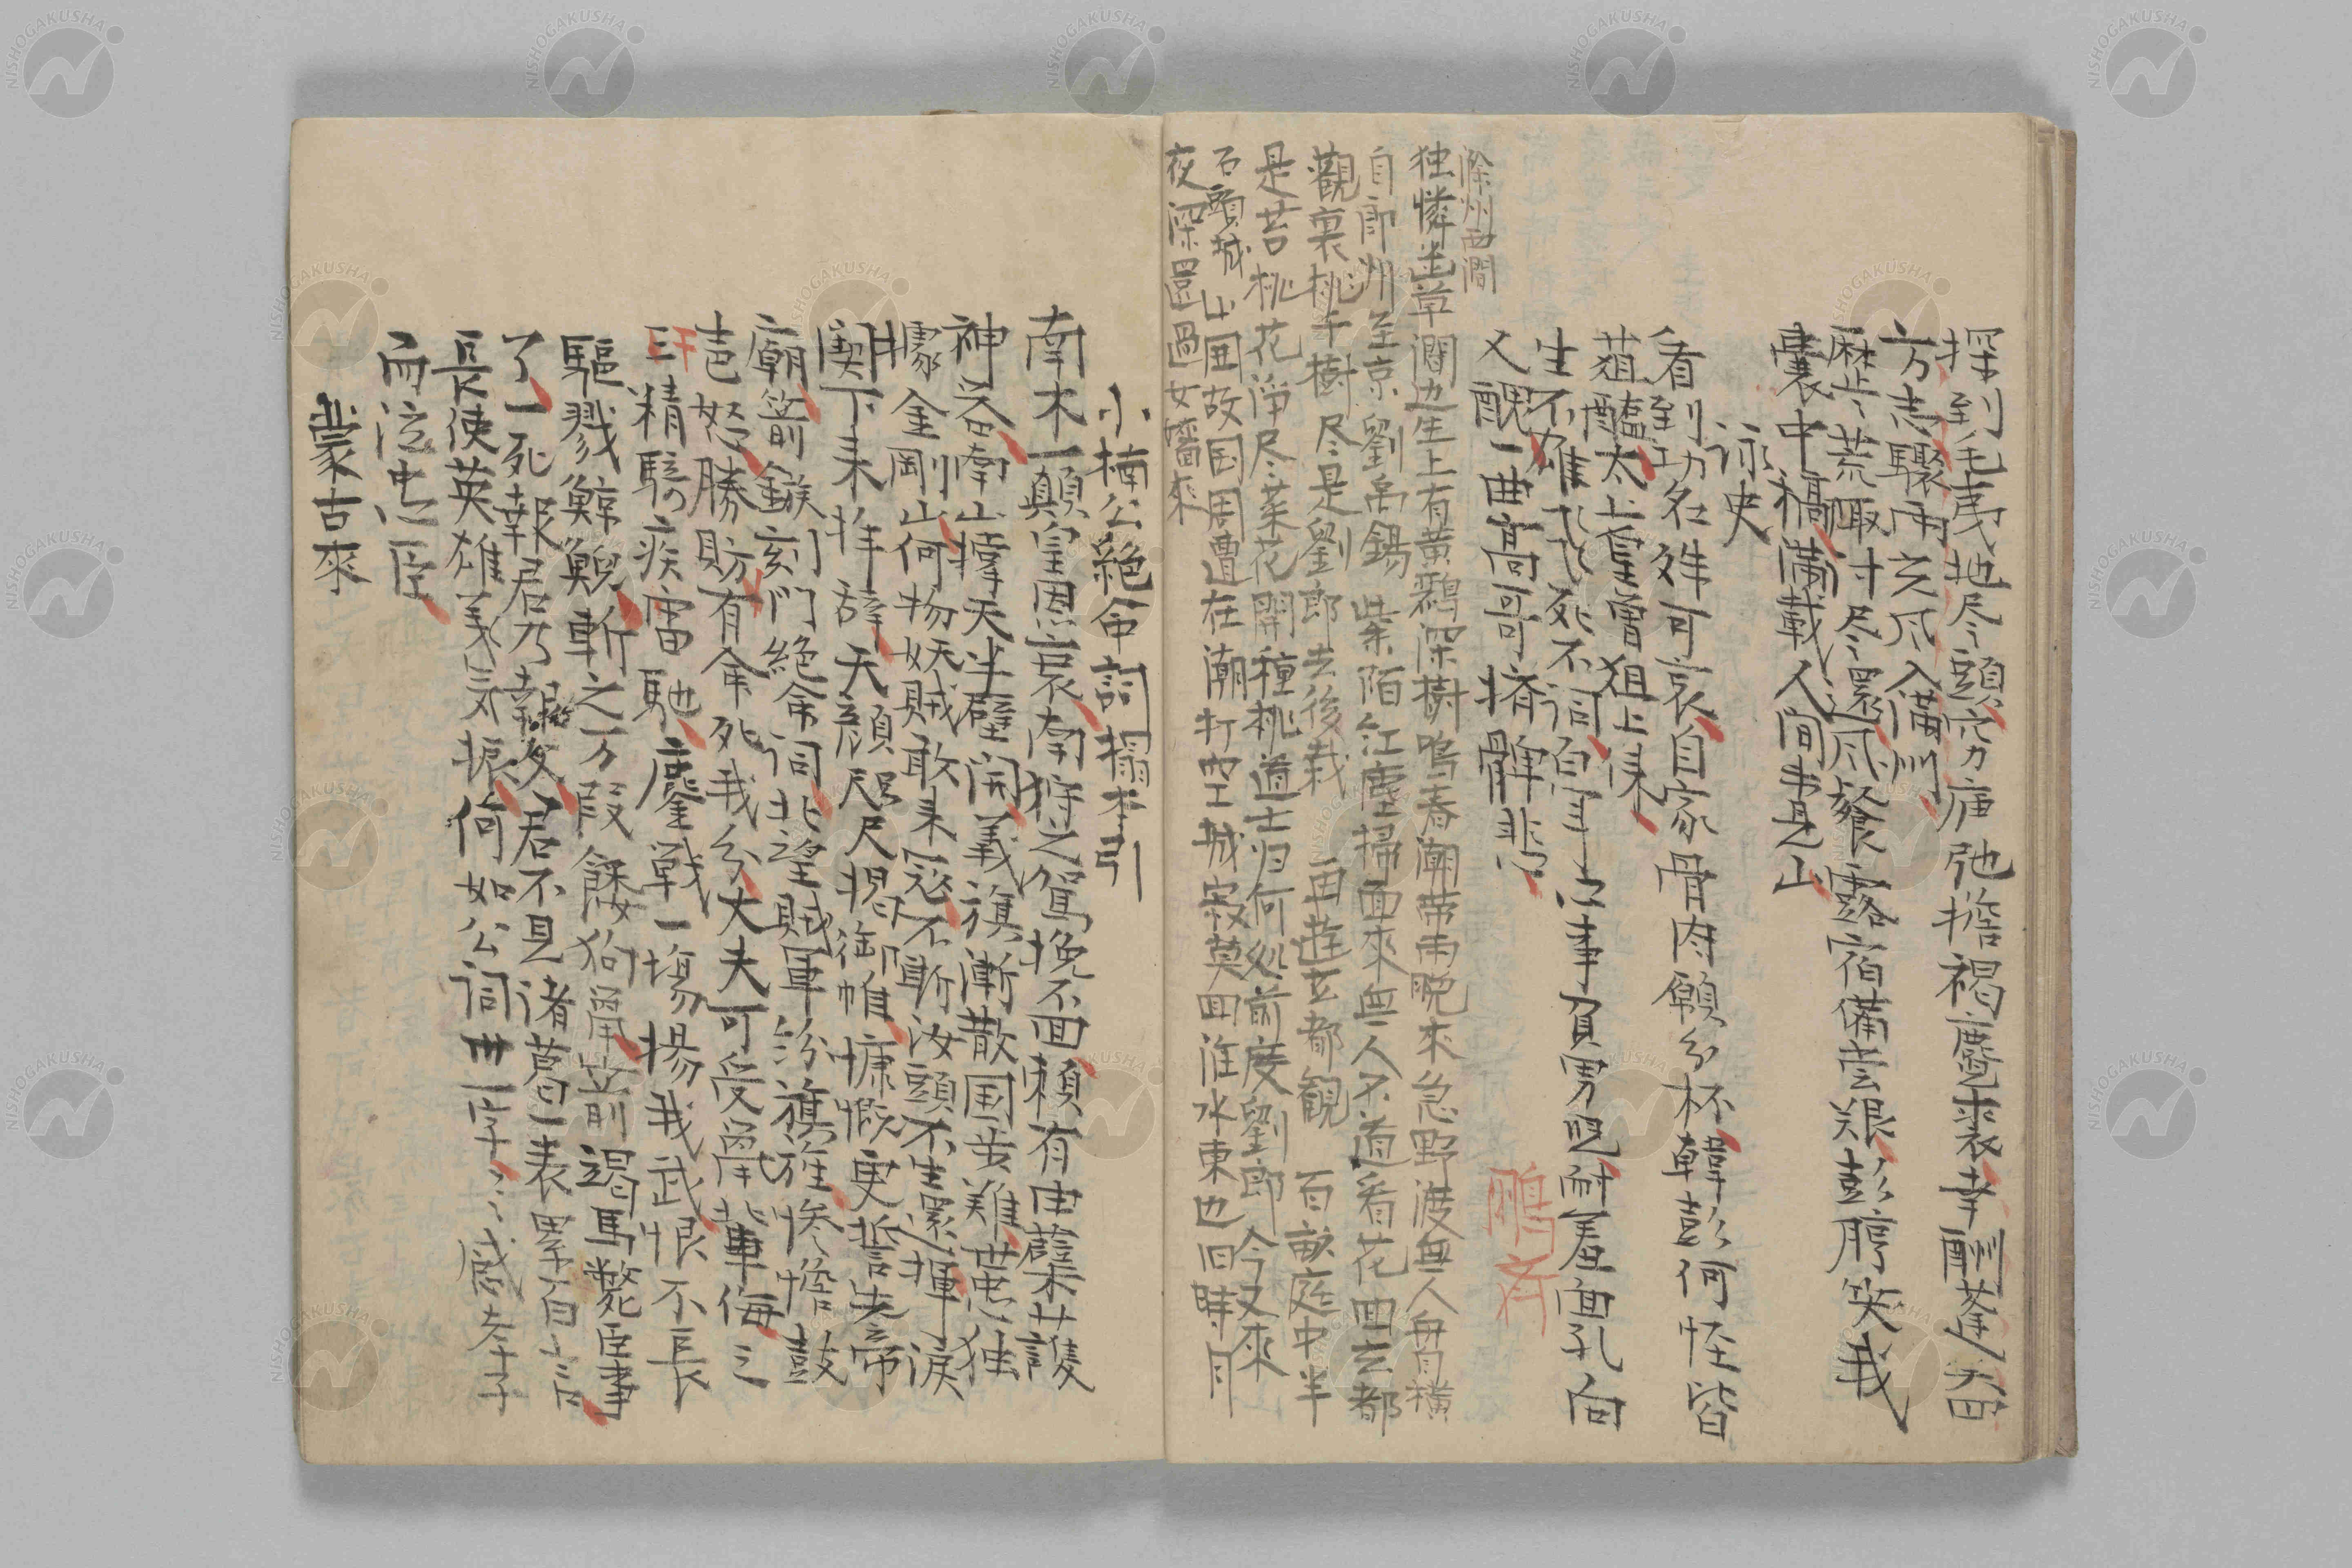 探到毛夷地尽頭穷力痩弛擔褐塵裘幸酬蓬矢四
方志驟雨玄风入満州
歴荒陬討尽還风餐露宿備嘗艱彭脝笑我
嚢中稿満載人間書思山
詠史
看到功名殊可哀自家骨肉願分杯韓彭何怪皆
葅醢太上皇曽狙上来
生不雄飛死不詞百年心事負男児耐羞面孔向
人醜一曲高哥撫髀悲
鵬斎
滁州西澗
独憐幽草澗边生上有黄鸝深樹鳴春潮帯雨晩来急野渡無人舟横
自郎州至京劉禹錫 紫陌紅塵掃面來無人不道看花回玄都
觀裏桃千樹尽是劉郎去後栽 再遊玄都観 百畝庭中半
是苔桃花浄尽菜花開種桃道士归何処前度劉郎今又來
石頭城 山囲故国周遭在潮打空城寂莫回淮水東辺旧時月
夜深還過女墻來
小楠公絶命詞搨本引
南木一顛皇恩哀南狩之駕挽不回頼有由蘖栄廿護
神谷南山擘天半壁開義旗漸散国歩難世悪独
據金剛山何物妖賊敢来寇不斬汝頭不生還揮涙
闕下来拝辞天顔咫尺掲御帷慷慨更誓先帝
廟箭鏃刻門絶命詞北望賊軍紛旗旌惨憺鼓
声怒勝敗有命死我分大夫可受凿輩侮三
三千精騎疾雷馳鏖戦一場揚我武恨不長
驅戮鯨鯢斬之万段餧狗凿前遏馬斃臣事
了一死報君乃報父君不見諸葛一表累百言
長使英雄義気振何如公詞卅一字々々感孝子
而泣忠臣
蒙古來